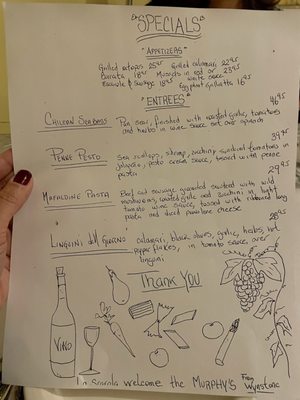 "SPECIALS"
"APPETIZERS"
Grilled octopus 25⁹⁵ Grilled calamari 22⁹⁵
Burrata 18⁹⁵ Mussels in red or 23⁹⁵
Escarole & Sausage 18⁹⁵ white sauce
Eggplant 16⁹⁵
"ENTREES"
46⁹⁵
CHILEAN SEABASS Pan sear, finished with roasted garlic, tomatoes
and herbs in wine sauce over spinach
39⁹⁵
PENNE PESTO Sea scallops, shrimp, zucchini sundried tomatoes in
pesto cream sauce, tossed with penne
pasta
29⁹⁵
MAFALDINE PASTA Beef and sausage with wild
mushrooms, roasted garlic and zucchini in light
tomato wine sauce, tossed with ribboned long
pasta and sliced parmesan cheese
28⁹⁵
LINGUINI DEL GIORNO calamari, black olives, garlic, herbs, hot
pepper flakes, in tomato sauce, over
linguini
THANK YOU
VINO
welcome the MURPHY'S From
Wynstone